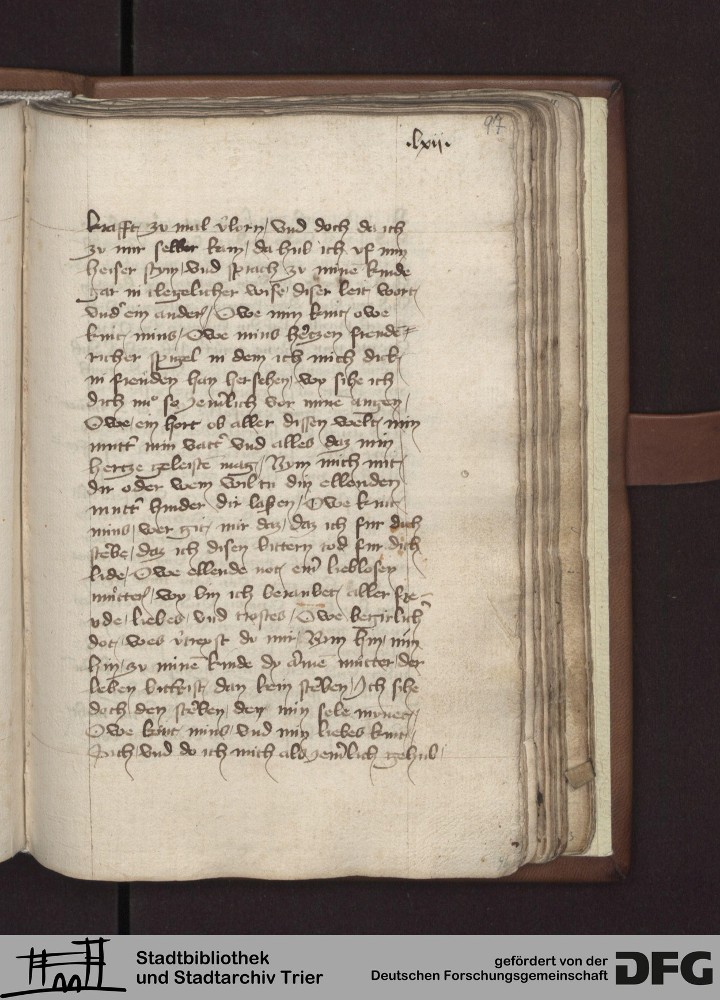 97
·lxii·
krafft zu mal v̓lorn / vnd doch da ich
zu mir selber kam / da hub ich vf min
heiser stym / vnd sprach zu mine kinde
gar in clegelicher wise / diser leit wort /
vnd ein ander / Owe min kint / owe
kint mins / Owe mins hertzen freude⸗
richer spigel in dem ich mich dick
in freuden han hersehen / wy sihe ich
dich nu so iemerlich vor mine augen /
Owe / ein hort ob aller dissen welt / min
mutt̓ min vatt̓ vnd alles daz min
hertze geleiste mag / Nym mich mit
dir oder wem wiltu din ellenden
mutt̓ hinder dir laßen / Owe kint
mins / wer git mir daz / daz ich fur dich
sterbe / daz ich disen bittern tod fur dich
lide / Owe ellende not / eine̓ lieblosen
mutter / wy bin ich beraubet / aller fre⸗
ude / liebes / vnd trostes / Owe begirlich̓
dot / wes v̓trepst du mir / Nym hin / nim
hin / zu mine kinde dy arme mutter / der
leben bitt̓ ist / dan kein sterben / Ich sihe
doch den sterben / den min sele mynet /
Owe kint mins / vnd min liebes kint /
Sich / vnd do ich mich also iemerlich gehub /
Stadtbibliothek
und Stadtarchiv Trier
gefördert von der
Deutschen Forschungsgemeinschaft
DFG